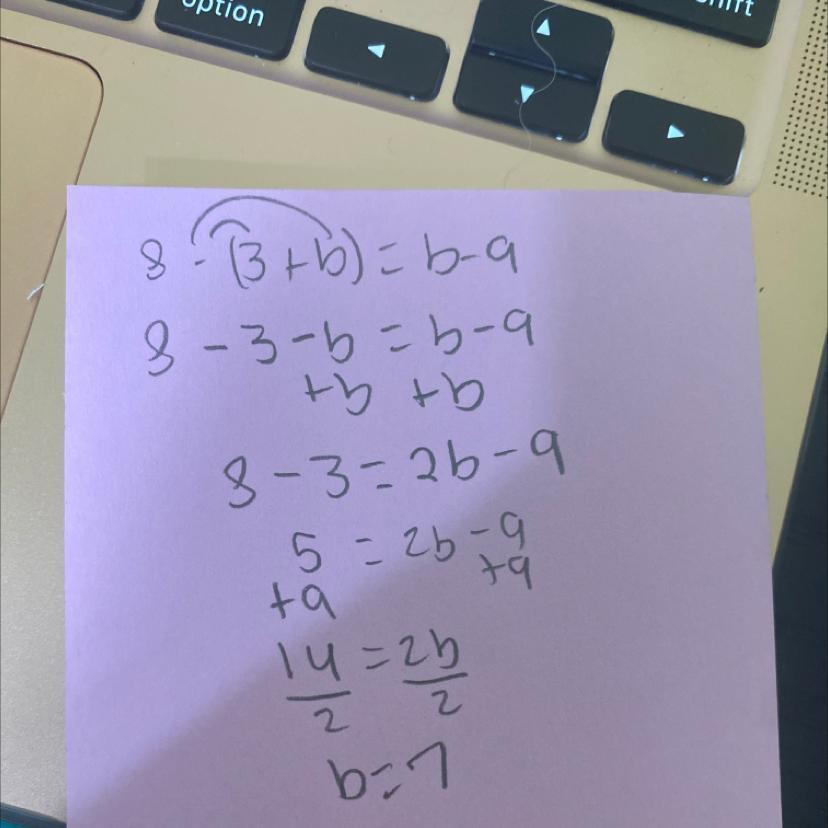 option
◄
▲
▼
►
shift
8 - (3 + b) = b - 9
8 - 3 - b = b - 9
+b +b
8 - 3 = 2b - 9
5 = 2b - 9
+9 +9
14 = 2b
2 2
b = 7